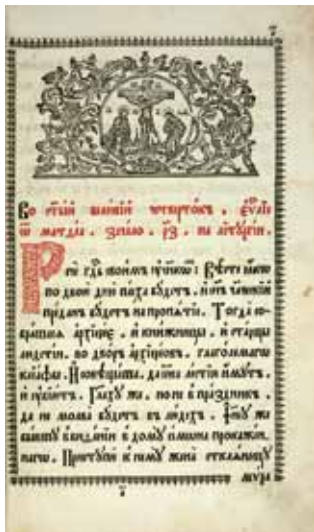 Во ст҃ы́й вели́кїй четверто́къ. є҆ѵⷢ҇лїе
ѿ матѳе́а. зача́ло. р҃з. на лїтꙋргі́и.
Речѐ гдⷭ҇ь свои̑мъ ᲂу҆чн҃кѡ́мъ: Вѣ́сте ꙗ҆́кѡ
по двою̀ дні́ю па́сха бꙋ́детъ, и҆ сн҃ъ чл҃вѣ́ческїй
пре́данъ бꙋ́детъ на пропѧ́тїе. Тогда̀ со-
бра́шасѧ а҆рхїере́є, и҆ кни́жницы, и҆ ста́рцы
людсті́и, во дво́ръ а҆рхїере́ѡвъ, глаго́лемагѡ
каїа́фы. И҆ совѣща́ша, да і҆и҃са ле́стїю и҆́мꙋтъ,
и҆ ᲂу҆бїю́тъ. Глаго́лахꙋ же, но не в пра́здникъ,
да не молва̀ бꙋ́детъ в лю́дехъ. І҆и҃сꙋ же
бы́вшꙋ в виѳа́нїи в домꙋ̀ си́мѡна прокаже́н-
нагѡ. Пристꙋпѝ к немꙋ̀ жена̀ сткля́ницꙋ
мѵ́ра